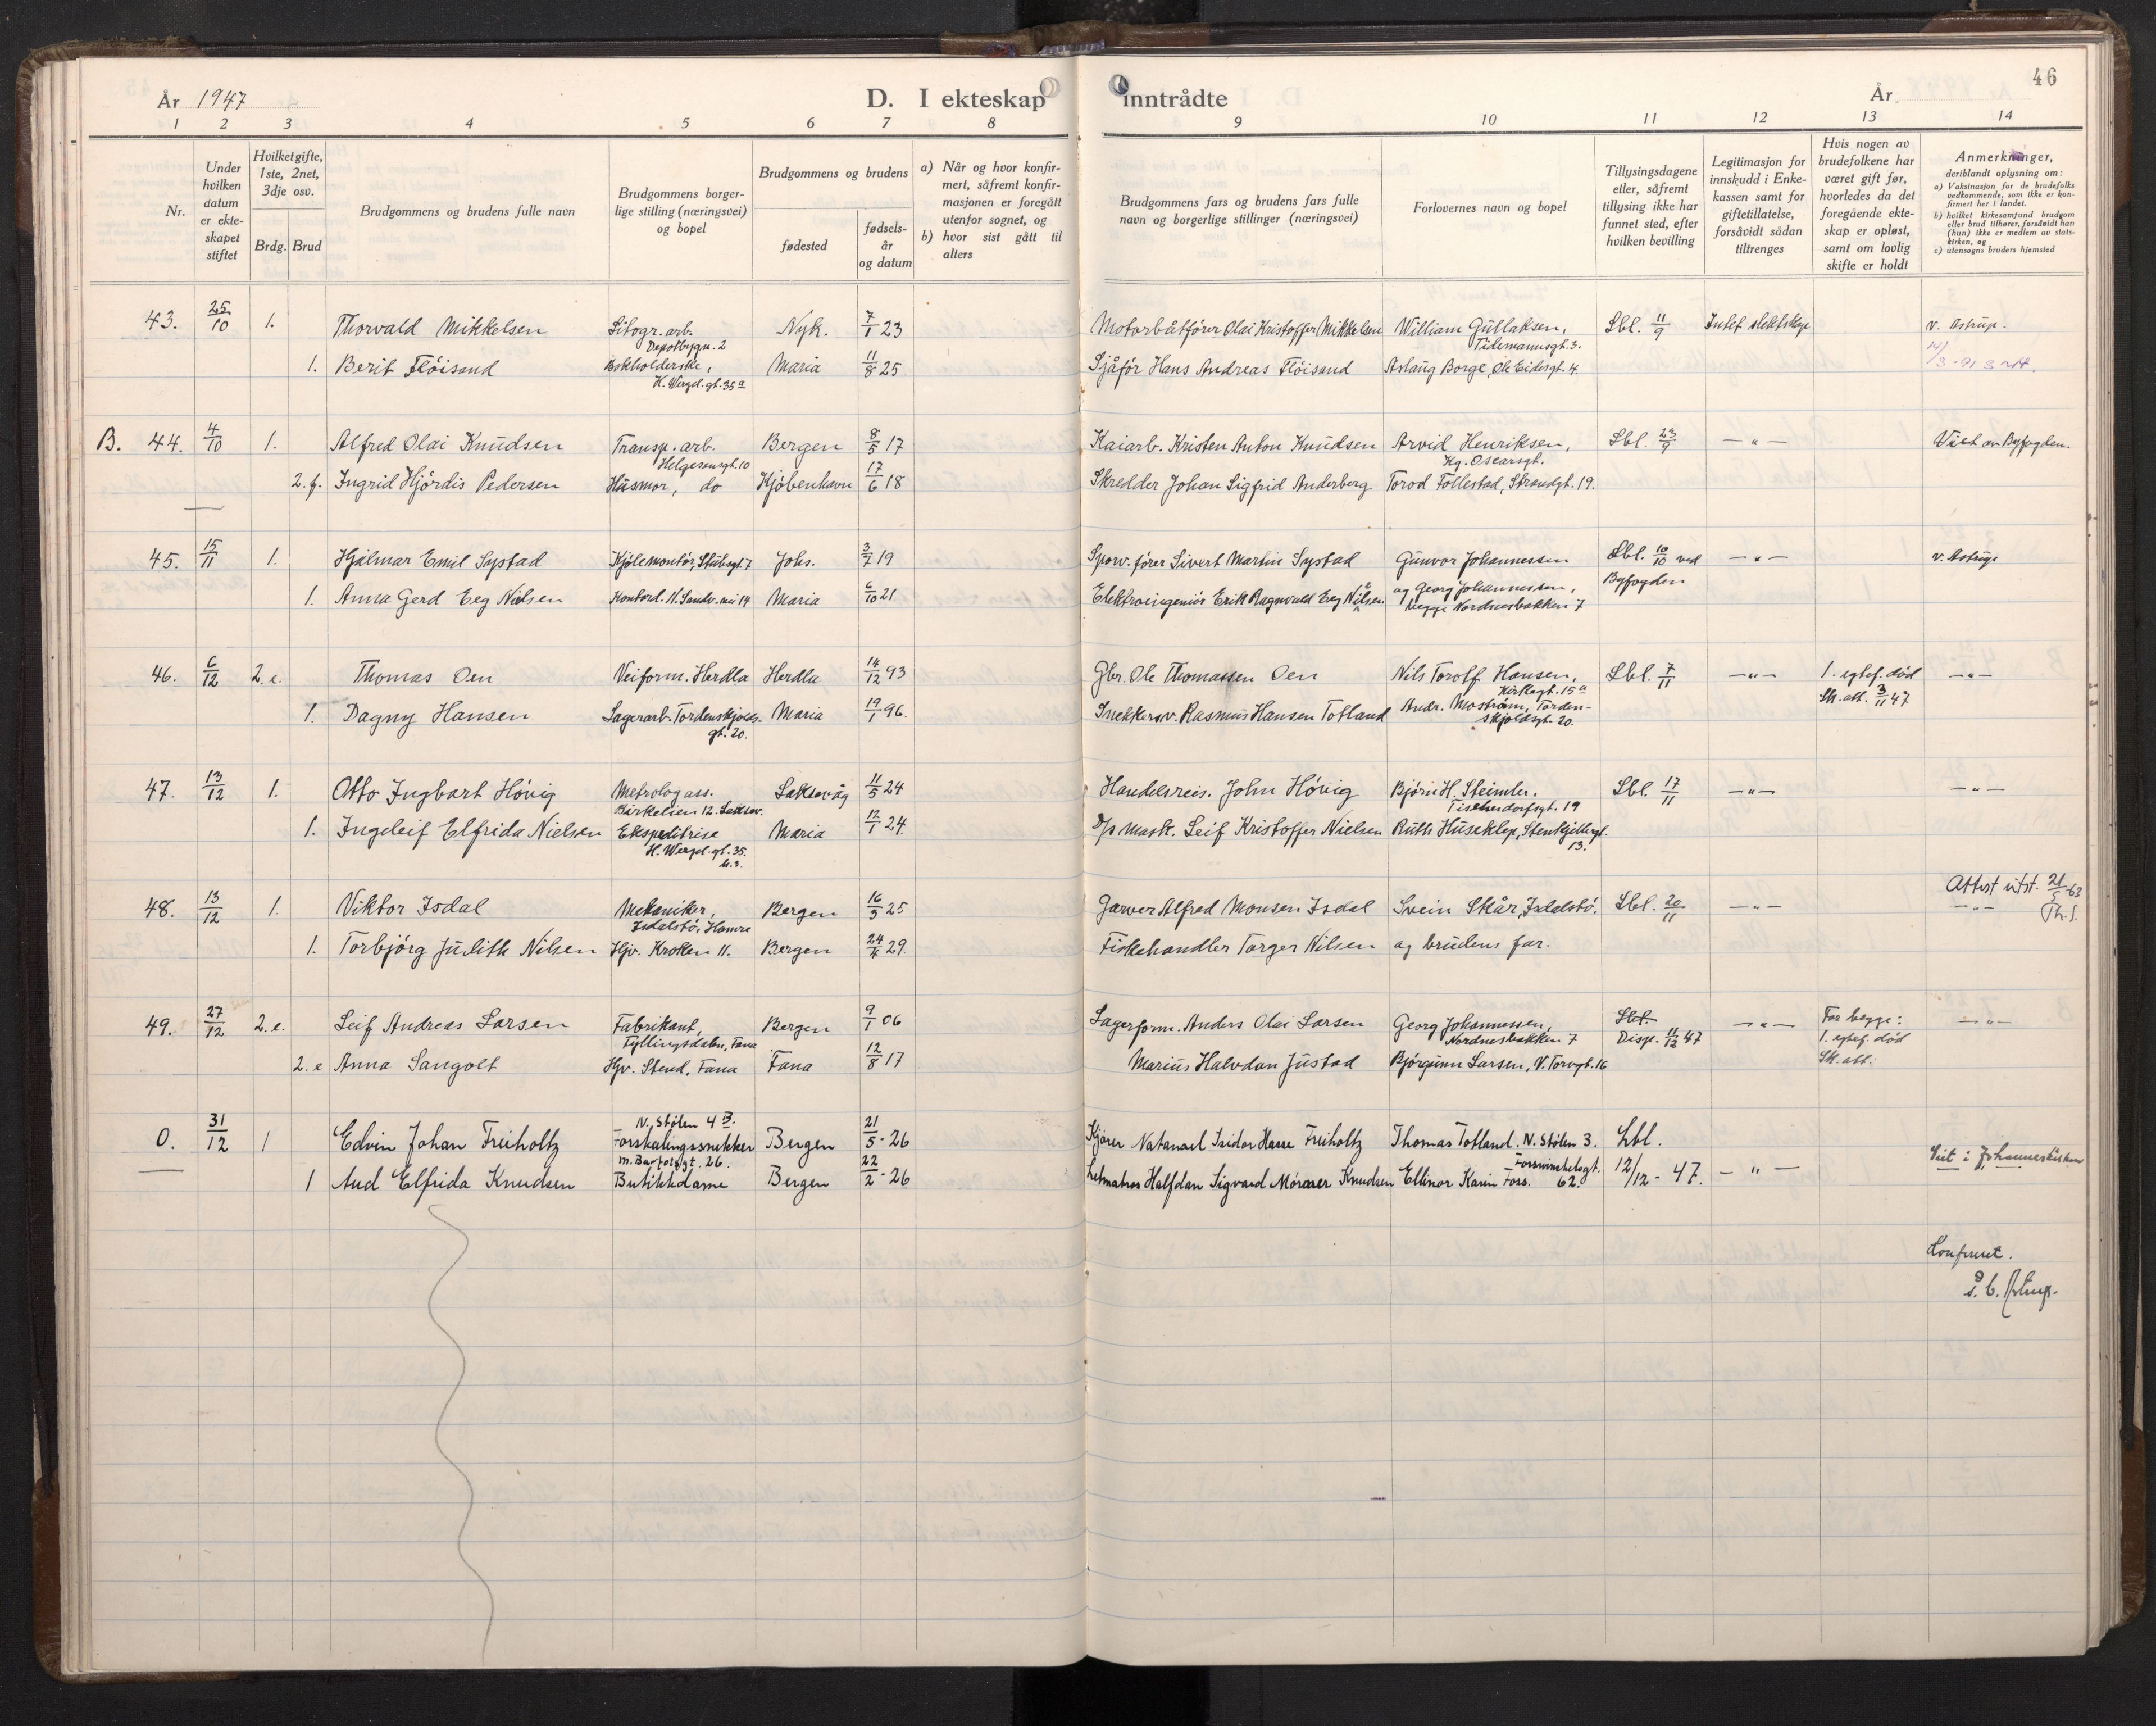 46
År 1947
D. I ekteskap inntrådte
År
1 2 3 4 5 6 7 8 9 10 11 12 13 14
Nr.
Under hvilken datum er ekteskapet stiftet
Hvilket gifte, 1ste, 2net, 3dje osv.
Brdg. Brud
Brudgommens og brudens fulle navn
Brudgommens borgerlige stilling (næringsvei) og bopel
Brudgommens og brudens
fødested
fødselsår og datum
a) Når og hvor konfirmert, såfremt konfirmasjonen er foregått utenfor sognet, og
b) hvor sist gått til alters
Brudgommens fars og brudens fars fulle navn og borgerlige stillinger (næringsvei)
Forlovernes navn og bopel
Tillysingsdagene eller, såfremt tillysing ikke har funnet sted, efter hvilken bevilling
Legitimasjon for innskudd i Enkekassen samt for giftetillatelse, forsåvidt sådan tiltrenges
Hvis nogen av brudefolkene har været gift før, hvorledes da det foregående ekteskap er opløst, samt om lovlig skifte er holdt
Anmerkninger, deriblandt oplysning om:
a) Vaksinasjon for de brudefolks vedkommende, som ikke er konfirmert her i landet.
b) hvilket kirkesamfund brudgom eller brud tilhører, forsåvidt han (hun) ikke er medlem av statskirken, og
c) utensogns bruders hjemsted
43. 25/10 1. Thorvald Mikkelsen Litogr. arb. Depotbygn. 2 Nyk. 7/1 23 Motorbåtfører Olai Kristoffer Mikkelsen William Gullaksen, Tidemannsgt. 3. Lbl. 11/9 Intet slektskap v. Astrup.
1. Berit Fløisand Bokholderske, H. Wergel. gt. 35a Maria 11/8 25 Sjåfør Hans Andreas Fløisand Aslaug Borge, Ole Eidesgt. 4.
B. 44. 4/10 1. Alfred Olai Knudsen Transp. arb. Helgesensgt. 10 Bergen 8/5 17 Kaiarb. Kristen Anton Knudsen Arvid Henriksen, Kg. Oscarsgt. Lbl. 23/9 -"- Viet av Byfogden.
2. f. Ingrid Hjördis Pedersen Husmor, do Kjøbenhavn 17/6 18 Skredder Johan Sigfrid Anderberg Torod Follestad, Strandgt. 19.
45. 15/11 1. Hjalmar Emil Systad Kjølemontør, Stubsgt. 7 Johs. 3/7 19 Sporv. fører Sivert Martin Systad Gunvor Johannessen Lbl. 10/10 ved -"- v. Astrup
1. Anna Gerd Eeg Nielsen Kontord. N. Sandv. vei 14 Maria 6/10 21 Elektroingeniør Erik Ragnvald Eeg Nilsen og Georg Johannessen, begge Nordnesbakken 7 Byfogden
46. 6/12 2. e. Thomas Oen Veiform. Herdla Herdla 14/12 93 Gbr. Ole Thomassen Oen Nils Torolf Hansen, Kirkegt. 15a Lbl. 7/11 -"- 1. egtef. død -"-
1. Dagny Hansen Lagerarb. Tordenskjolds- gt. 20. Maria 19/1 96. Snekkersv. Rasmus Hansen Totland Andr. Mostrøm, Torden- skjoldsgt. 20. Sk. att. 3/11 47
47. 13/12 1. Otto Ingbart Høvig Metrologass. Birkelien 12. Laksev. Laksevåg 11/5 24 Handelsreis. John Høvig Bjørn H. Steimler. Tischendorfsgt. 19 Lbl. 17/11 -"- -"-
1. Ingeleif Elfrida Nielsen Ekspeditrise H. Wergel. gt. 35. Maria 12/1 24. D/s Mask. Leif Kristoffer Nielsen Ruth Huseklep, Stenkjellergt. 13.
48. 13/12 1. Viktor Isdal Mekaniker, Isdalstø, Hamre Bergen 16/5 25 Garver Alfred Monsen Isdal Svein Skår, Isdalstø. Lbl. 20/11 -"- Attest utst. 21/5-63 -"- Th. S.
1. Torbjörg Judith Nilsen Hjv. Kroken 11. Bergen 24/4 29. Fiskehandler Torger Nilsen og brudens far.
49. 27/12 2. e. Leif Andreas Larsen Fabrikant, Fyllingsdalen, Fana Bergen 9/1 06 Lagerform. Anders Olai Larsen Georg Johannessen, Nordnesbakken 7 Lbl. Disp. 11/12 47 -"- For begge: 1. egtef. død Sk. att. -"-
2. e Anna Sangolt Hjv. Stend, Fana Fana 12/8 17 Marius Halvdan Justad Bjørgunn Larsen, V. Torvgt. 16
O. 31/12 1 Edvin Johan Freiholtz N. Stølen 4 B. Forskalingssnekker Bergen 21/5-26 Kjører Natanael Isidor Hasse Freiholtz Thomas Totland. N. Stølen 3. Lbl.
1 Aud Elfrida Knudsen 26. Butikkdame Bergen 22/2-26 Halfdan Sigvard Knudsen Ellinor Karin Foss. 62. 12/12-47. -"- Viet i Johanneskirken
Konferert.
Astrup.